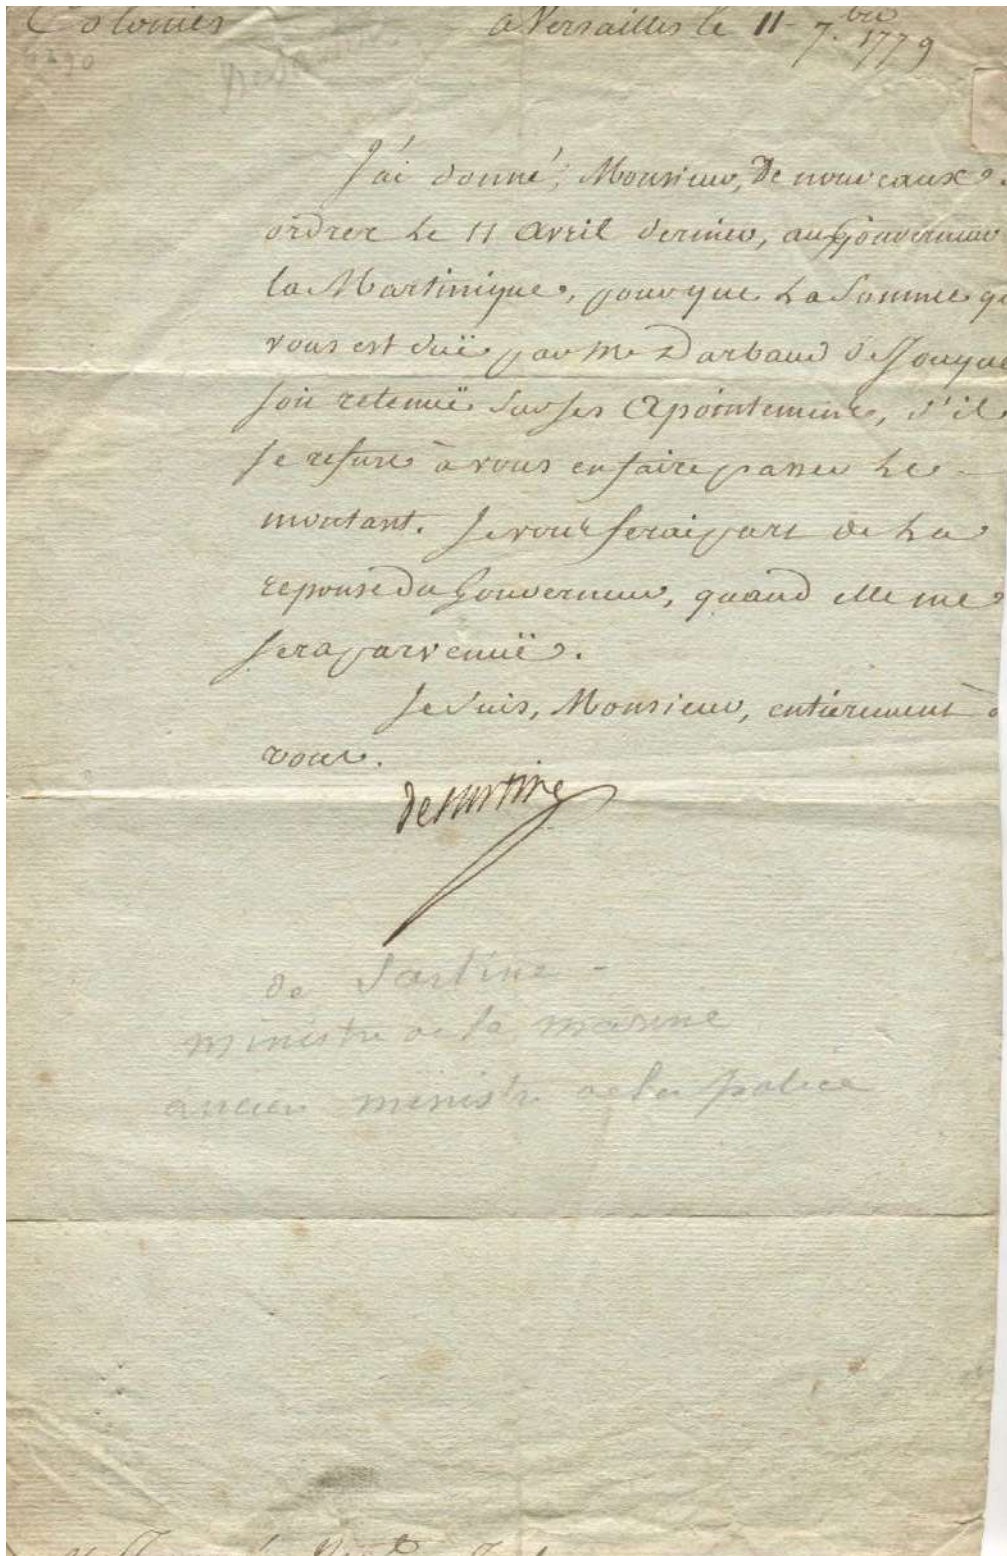 Colonies
a Versailles le 11 7.bre 1779
J'ai donné, Monsieur, de nouveaux
ordres le 11 avril dernier, au Gouverneur
la Martinique, pour que la somme q
vous est duë par Mr Darbaud de Jouque
soit retenuë sur ses Apointements, s'il
se refuse à vous en faire passer le
montant. Je vous ferai part de la
reponse du Gouverneur, quand elle me
sera parvenuë.
Je suis, Monsieur, entièrement à
vous.
de Sartine
de Sartine -
ministre de la marine
ancien ministre de la police